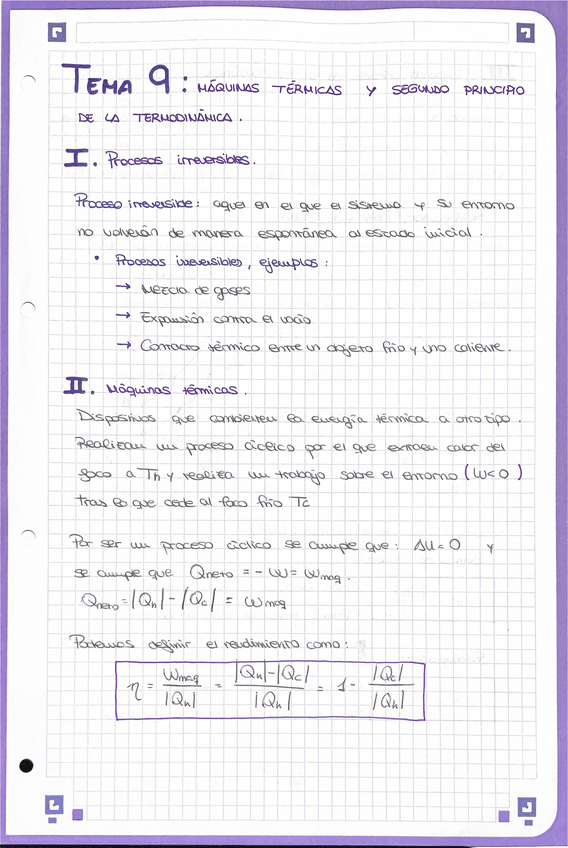 TEMA 9: MÁQUINAS TÉRMICAS Y SEGUNDO PRINCIPIO
DE LA TERMODINÁMICA.
I. Procesos irreversibles.
Proceso irreversible: aquel en el que el sistema y su entorno
no volverán de manera espontánea al estado inicial.
• Procesos irreversibles, ejemplos:
→ Mezcla de gases
→ Expansión contra el vacío
→ Contacto térmico entre un objeto frío y uno caliente.
II. Máquinas térmicas.
Dispositivos que convierten la energía térmica a otro tipo.
Realizan un proceso cíclico por el que extraen calor del
foco a Th y realiza un trabajo sobre el entorno (W<0)
tras lo que cede al foco frío Tc
Por ser un proceso cíclico se cumple que: ΔU=0 y
se cumple que Qneto = -W = Wmaq.
Qneto = |Qh| - |Qc| = Wmaq
Podemos definir el rendimiento como:
η = Wmaq / |Qh| = |Qh|-|Qc| / |Qh| = 1 - |Qc| / |Qh|